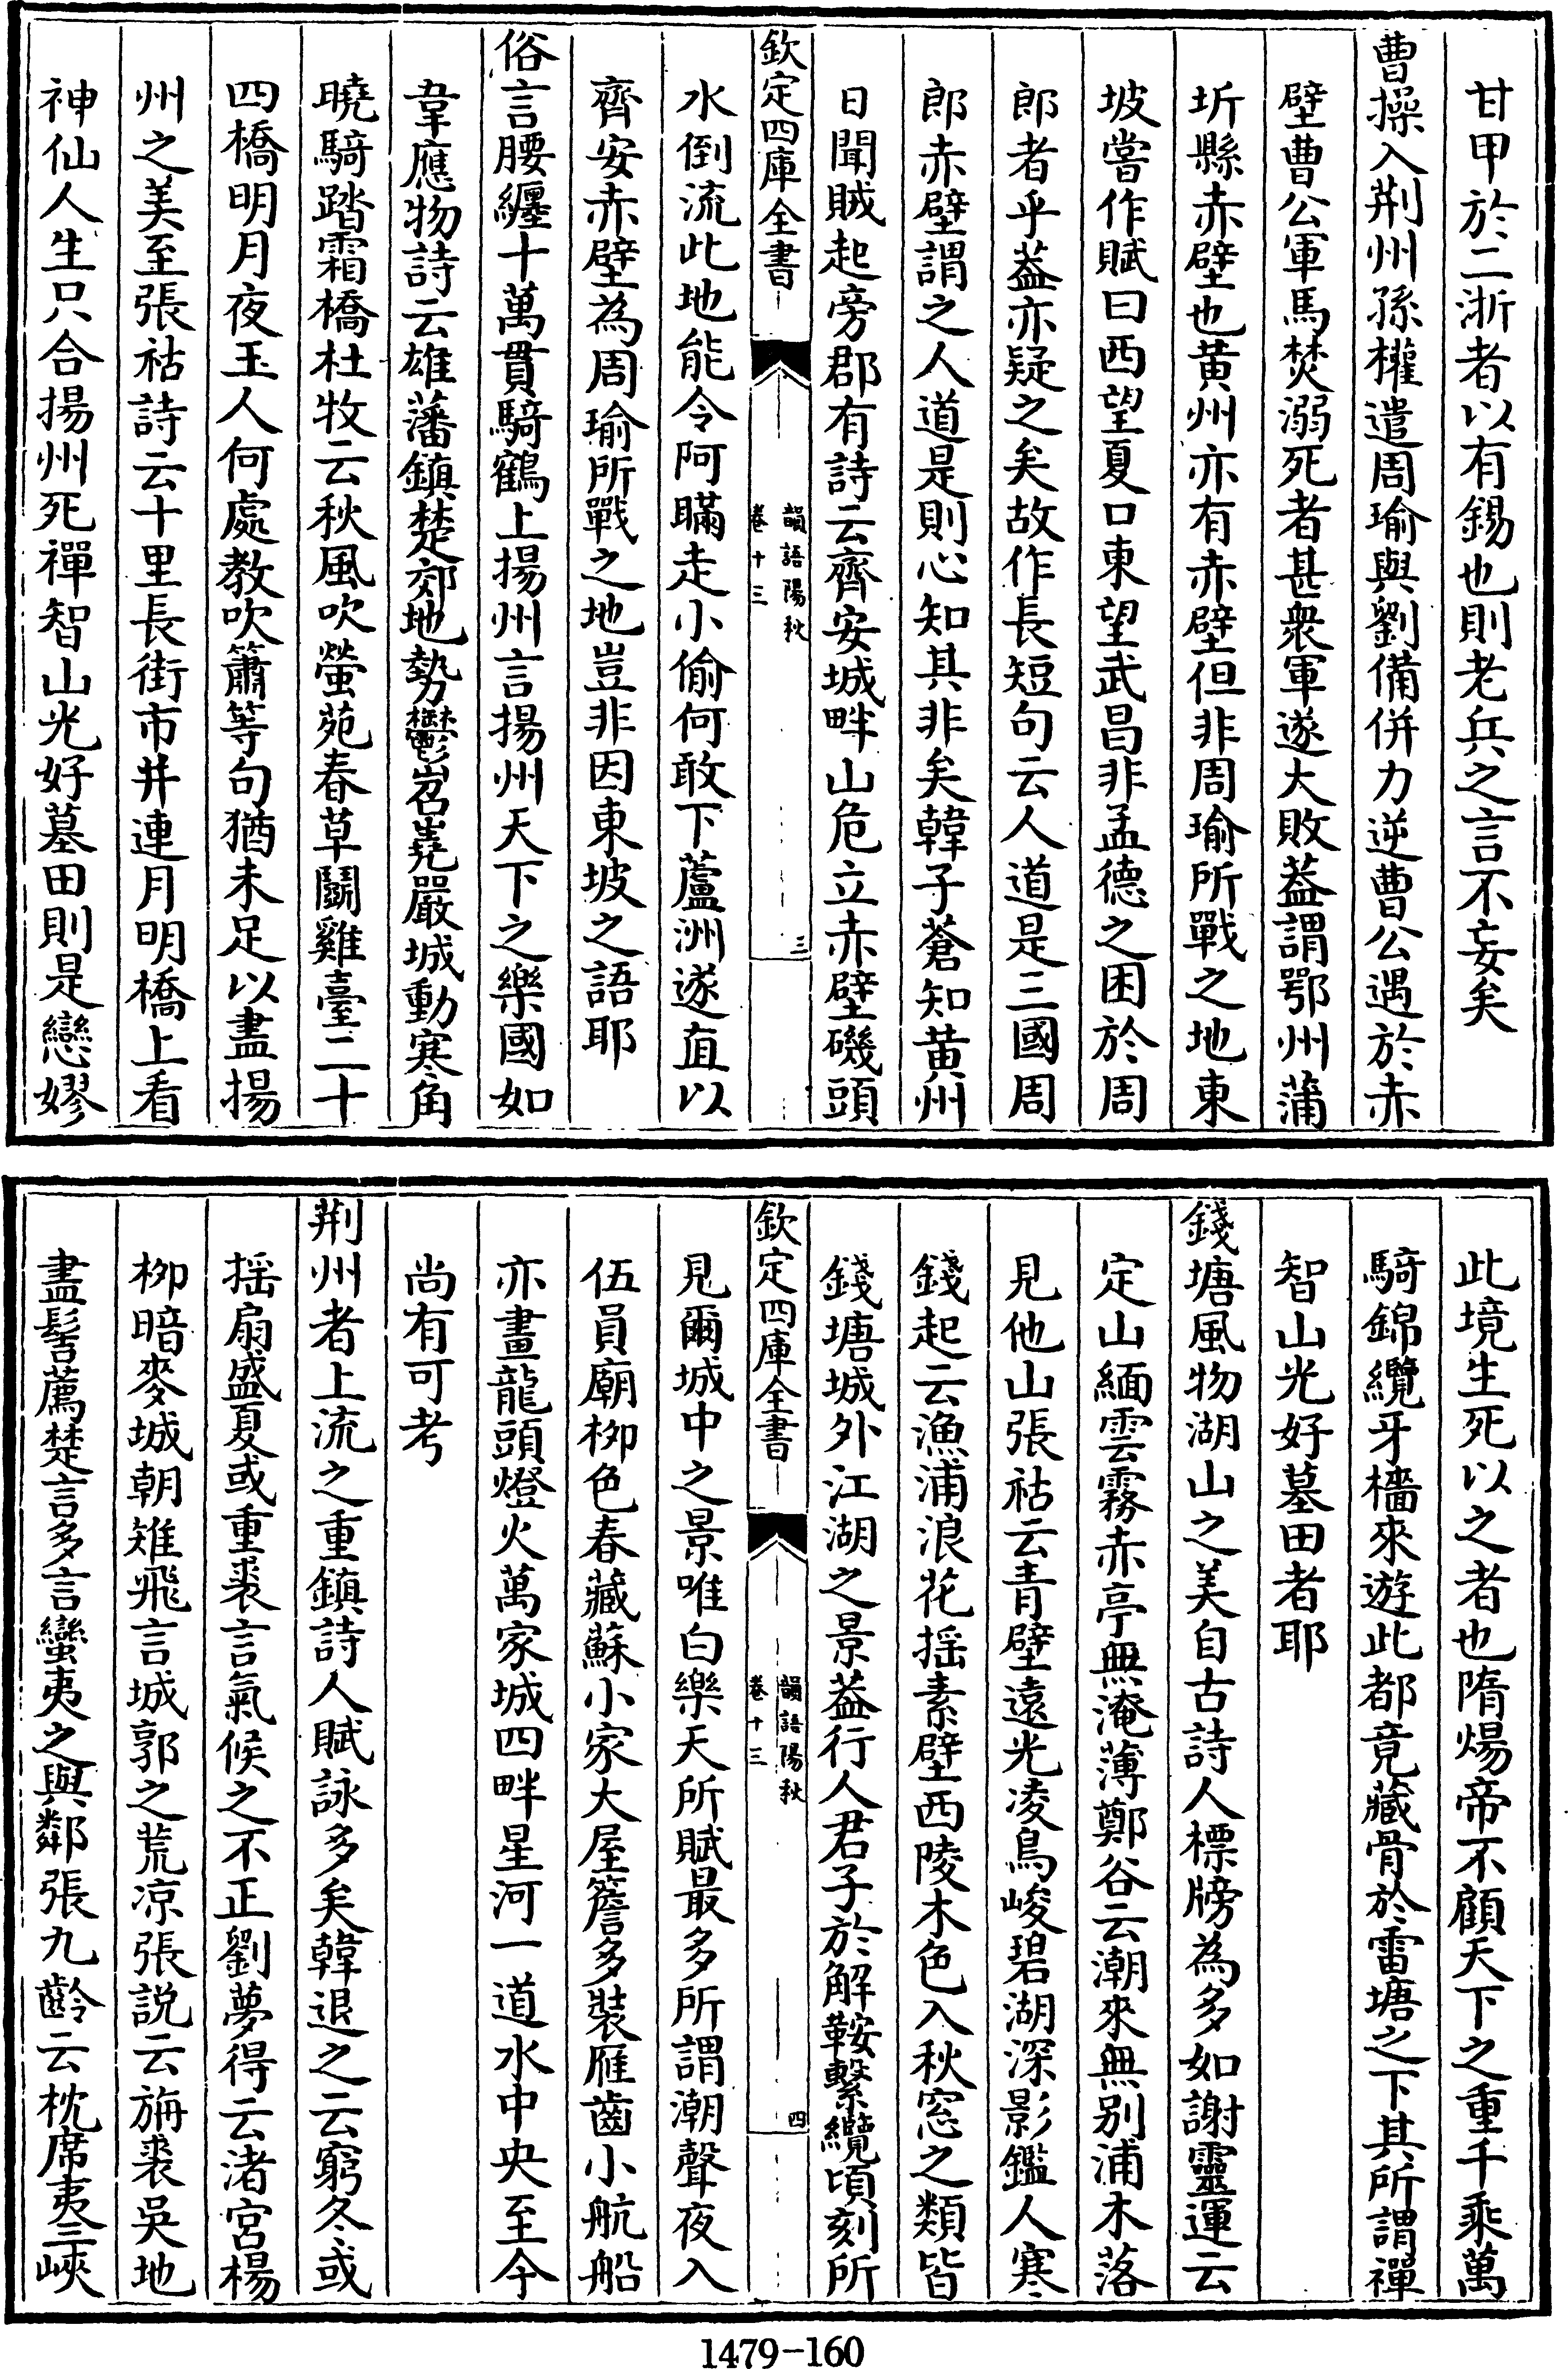 甘甲於二浙者以有錫也則老兵之言不妄矣
曹操入荆州孫權遣周瑜與劉備併力逆曹公遇於赤
壁曹公軍馬焚溺死者甚衆軍遂大敗葢謂鄂州蒲
圻縣赤壁也黄州亦有赤壁但非周瑜所戰之地東
坡嘗作賦曰西望夏口東望武昌非孟德之困於周
郎者乎葢亦疑之矣故作長短句云人道是三國周
郎赤壁謂之人道是則心知其非矣韓子蒼知黄州
日聞賊起旁郡有詩云齊安城畔山危立赤壁磯頭
欽定四庫全書
韻語陽秋
卷十三
三
水倒流此地能令阿瞞走小偷何敢下蘆洲遂直以
齊安赤壁為周瑜所戰之地豈非因東坡之語耶
俗言腰纏十萬貫騎鶴上揚州言揚州天下之樂國如
韋應物詩云雄藩鎮楚郊地勢鬱岧嶤嚴城動寒角
曉騎踏霜橋杜牧云秋風吹螢苑春草鬭雞臺二十
四橋明月夜玉人何處教吹簫等句猶未足以盡揚
州之美至張祜詩云十里長街市井連月明橋上看
神仙人生只合揚州死禪智山光好墓田則是戀嫪
此境生死以之者也隋煬帝不顧天下之重千乘萬
騎錦纜牙檣來遊此都竟藏骨於雷塘之下其所謂禪
智山光好墓田者耶
錢塘風物湖山之美自古詩人標牓為多如謝靈運云
定山緬雲霧赤亭無淹薄鄭谷云潮來無别浦木落
見他山張祜云青壁遠光凌鳥峻碧湖深影鑑人寒
錢起云漁浦浪花揺素壁西陵木色入秋窓之類皆
錢塘城外江湖之景葢行人君子於解鞍繫纜頃刻所
欽定四庫全書
韻語陽秋
卷十三
四
見爾城中之景唯白樂天所賦最多所謂潮聲夜入
伍員廟柳色春藏蘇小家大屋簷多裝雁齒小航船
亦畫龍頭燈火萬家城四畔星河一道水中央至今
尚有可考
荆州者上流之重鎮詩人賦詠多矣韓退之云窮冬或
揺扇盛夏或重裘言氣候之不正劉夢得云渚宮楊
柳暗麥城朝雉飛言城郭之荒凉張説云旃裘吳地
盡髻薦楚言多言蠻夷之與鄰張九齡云枕席夷三峽
1479-160